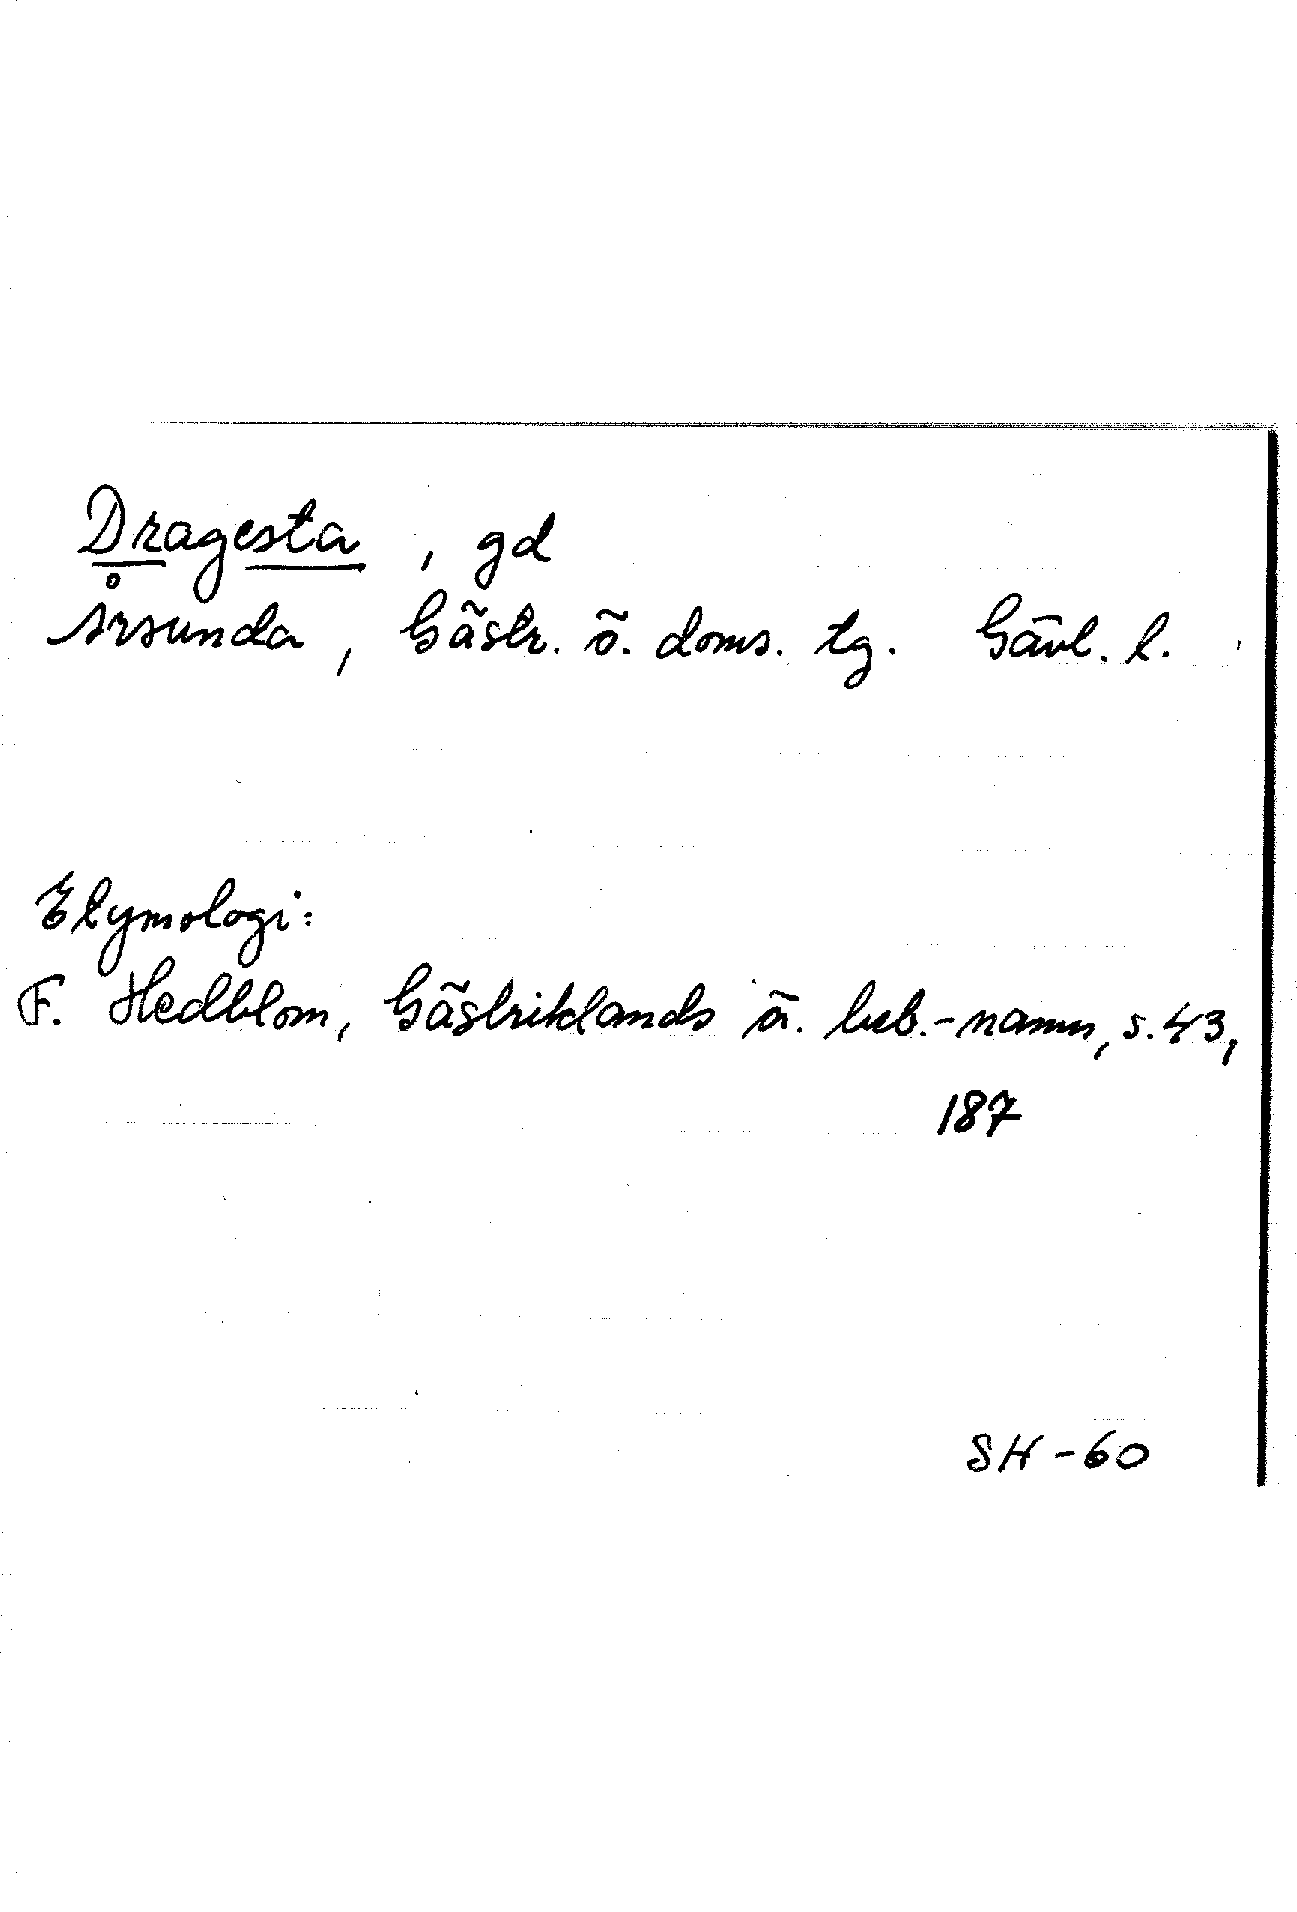 Dragesta, gd
Årsunda, Gästr. ö. doms. tg. Gävl. l.
Etymologi:
F. Hedblom, Gästriklands ä. beb.-namn, s. 43,
187
SH-60